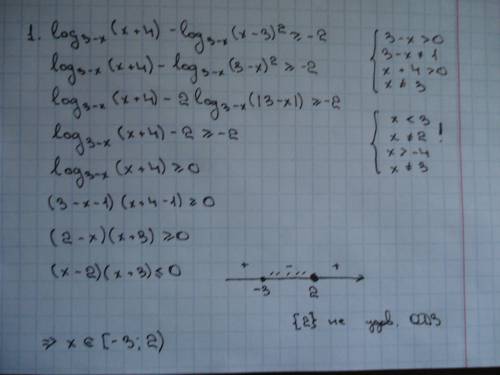 1. log₃₋ₓ(x+4) - log₃₋ₓ(x-3)² ≥ -2
log₃₋ₓ(x+4) - log₃₋ₓ(3-x)² ≥ -2
log₃₋ₓ(x+4) - 2 log₃₋ₓ(|3-x|) ≥ -2
log₃₋ₓ(x+4) - 2 ≥ -2
log₃₋ₓ(x+4) ≥ 0
(3-x-1)(x+4-1) ≥ 0
(2-x)(x+3) ≥ 0
(x-2)(x+3) ≤ 0
⇒ x ∈ [-3; 2)
{ 3-x > 0
3-x ≠ 1
x+4 > 0
x ≠ 3
{ x < 3
x ≠ 2 !
x > -4
x ≠ 3
+ - +
-3 2
{2} не удов. ОДЗ